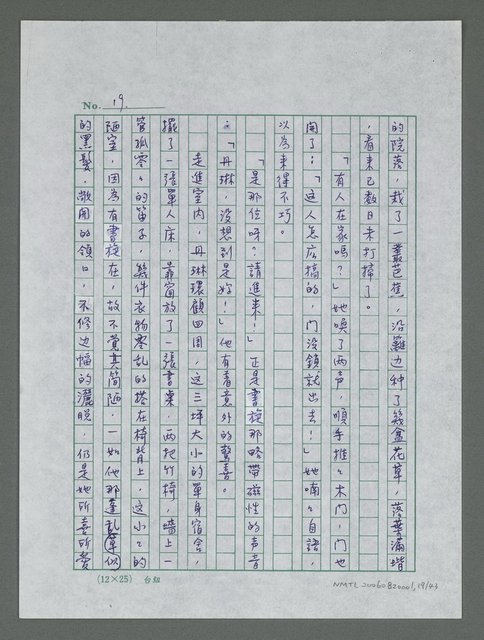 No. 19.
的院落，栽了一叢芭蕉，沿籬边种了幾盆花草，落葉滿堦
，看来已数日未打掃了。
「有人在家嗎？」她喚了两声，順手推々木门，门也
開了：「这人怎広搞的，门没鎖就出去！」她喃々自語，
以為来得不巧。
「是那位呀？請進来！」正是書旋那略帶磁性的声音
。「丹琳，没想到是妳！」他有着意外的驚喜。
走進室内，丹琳環顧四周，这三坪大小的單身宿舍，
擺了一張單人床，靠窗放了一張書桌，两把竹椅，墙上一
管孤零々的笛子，幾件衣物零乱的搭在椅背上，这小々的
陋室，因為有書旋在，故不覚其简陋，一如他那蓬乱草似
的黑髮，敞開的領口，不修边幅的灑脱，仍是她所喜所愛
(12×25) 台組
NMTL20060820001,19/43